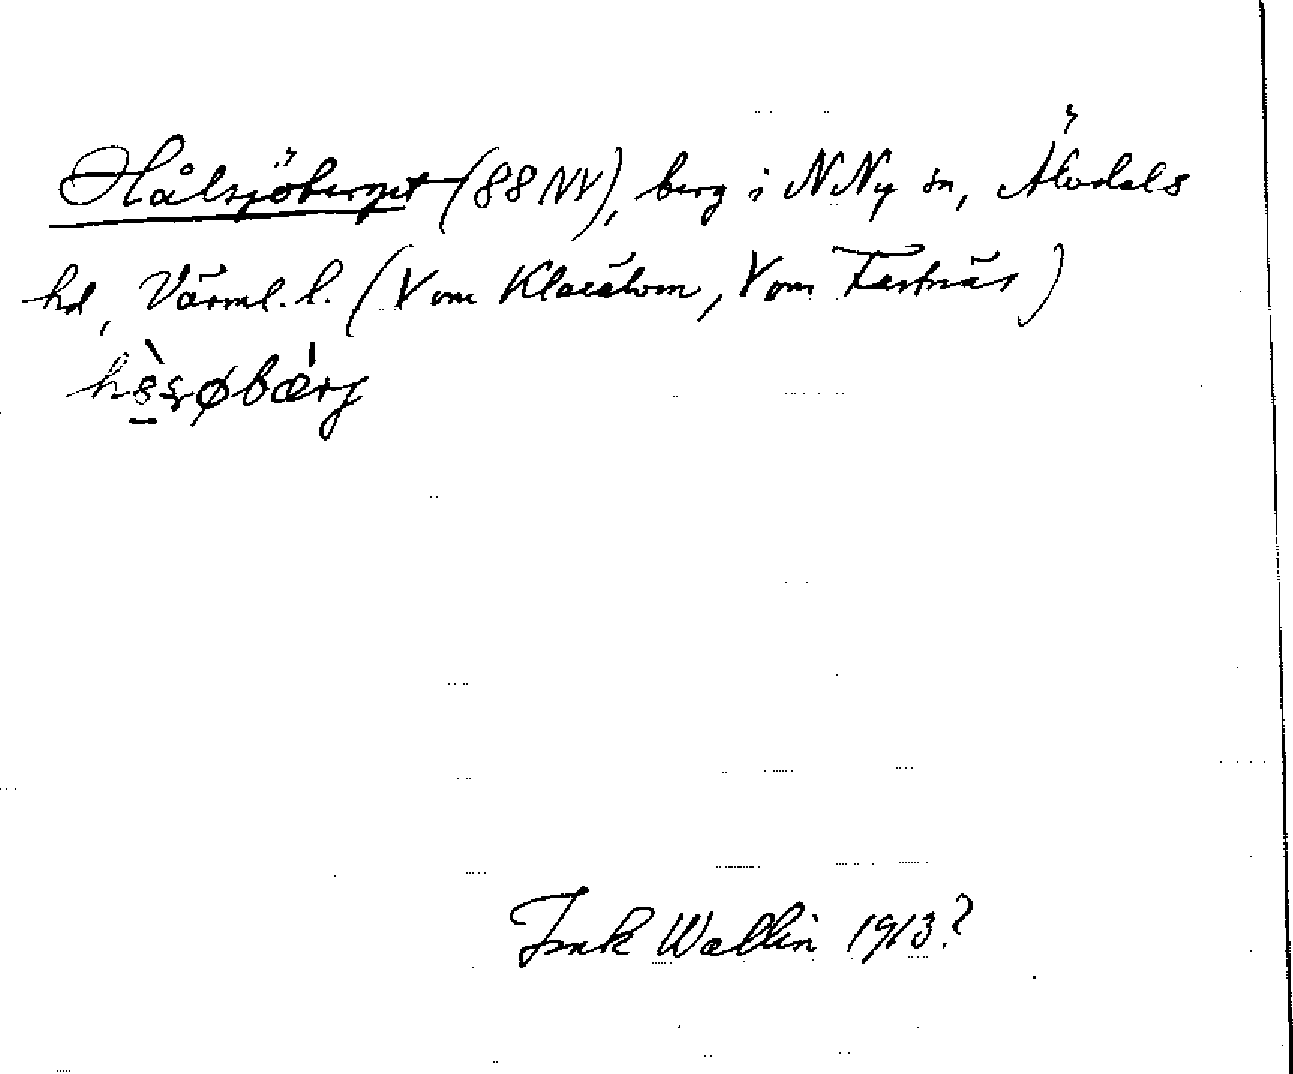 Hålsjöberget (88 NV), berg i N Ny sn, Älvdals
hd, Värml. l. (V om Klarälven, V om Tutnäs)
Isak Wallin 1913?